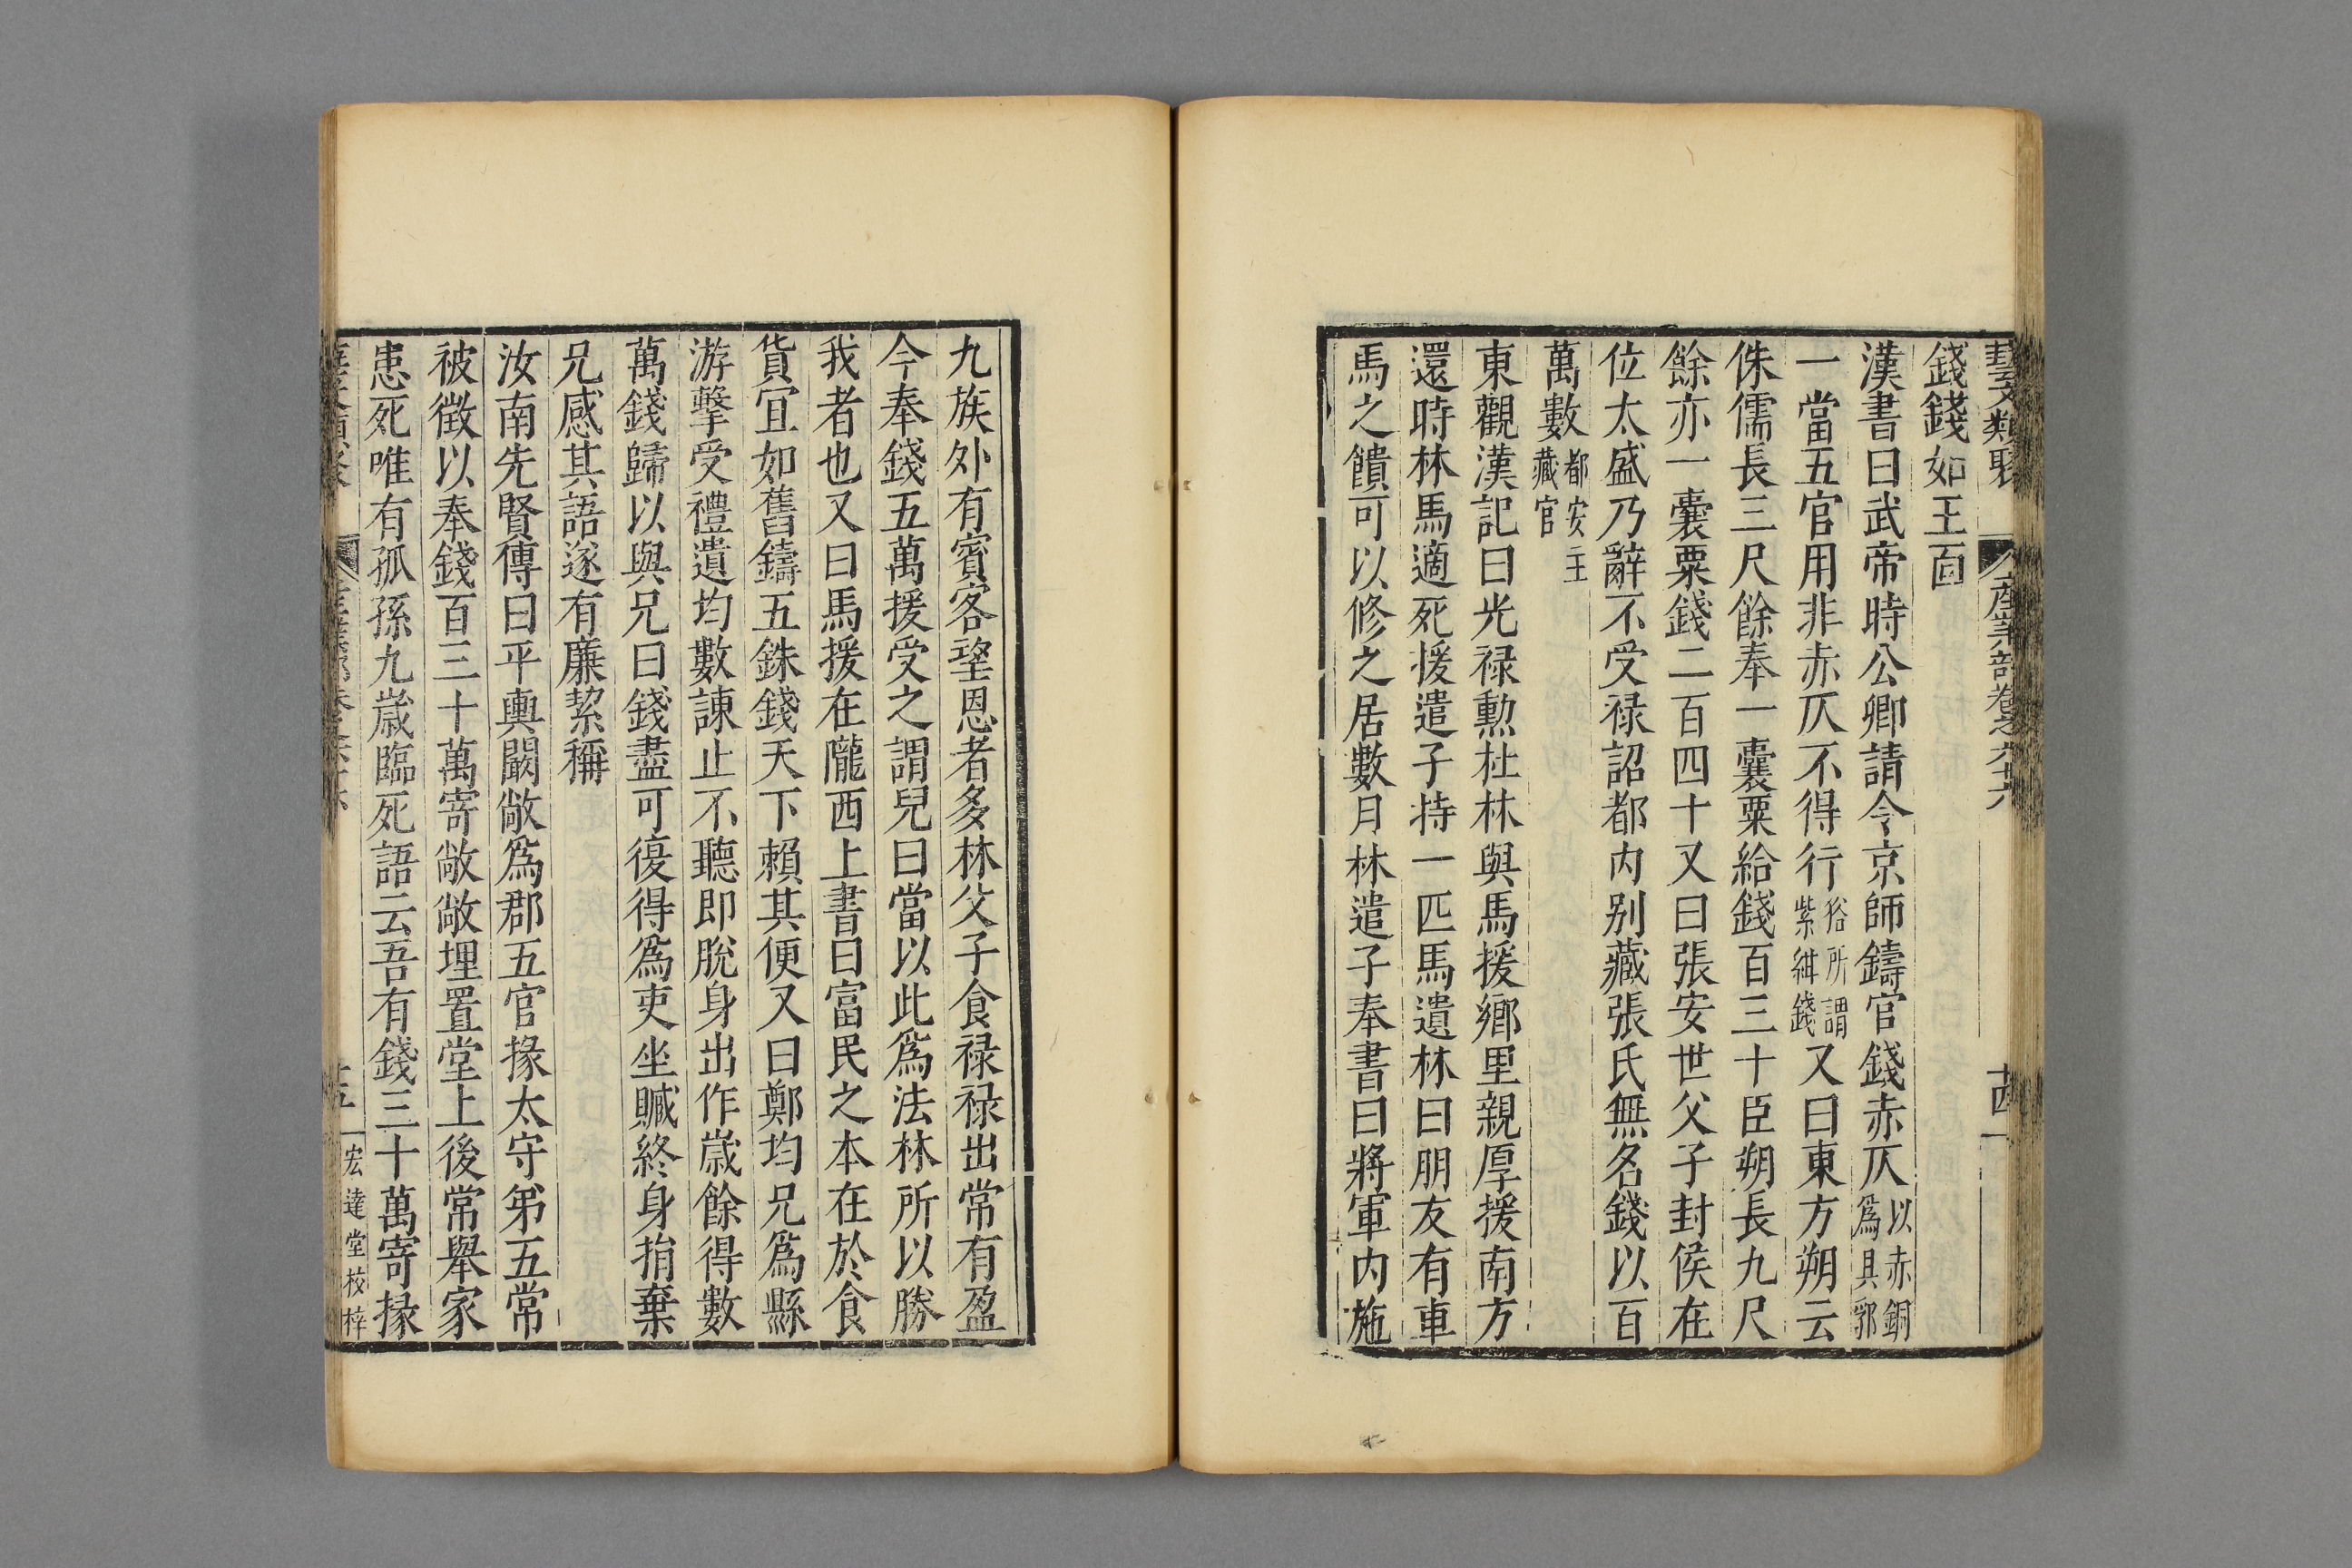 藝文類聚 産業部卷之六十六 十四
錢錢如王面
漢書曰武帝時公卿請令京師鑄官錢赤仄以赤銅爲具郭
一當五官用非赤仄不得行俗所謂紫紺錢又曰東方朔云
侏儒長三尺餘奉一囊粟給錢百三十臣朔長九尺
餘亦一囊粟錢二百四十又曰張安世父子封侯在
位太盛乃辭不受禄詔都内别藏張氏無名錢以百
萬數都安主藏官
東觀漢記曰光禄勲杜林與馬援鄉里親厚援南方
還時林馬適死援遣子持一匹馬遺林曰朋友有車
馬之饋可以修之居數月林遣子奉書曰將軍内施
九族外有賓客望恩者多林父子食禄禄出常有盈
今奉錢五萬援受之謂兒曰當以此爲法林所以勝
我者也又曰馬援在隴西上書曰富民之本在於食
貨宜如舊鑄五銖錢天下賴其便又曰鄭均兄爲縣
游擊受禮遺均數諫止不聽即脱身出作嵗餘得數
萬錢歸以與兄曰錢盡可復得爲吏坐贓終身捐棄
兄感其語遂有廉絜稱
汝南先賢傳曰平輿闞敞爲郡五官掾太守第五常
被徵以奉錢百三十萬寄敞敞埋置堂上後常舉家
患死唯有孤孫九嵗臨死語云吾有錢三十萬寄掾
十五 宏達堂校梓